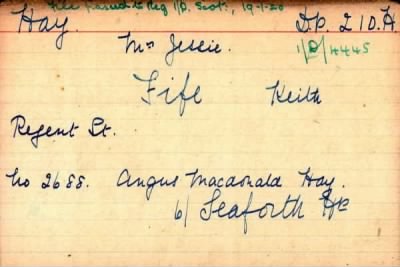 File passed to Reg 1/D. Scot., 19-1-20
Hay. D.P. 2 1D.A.
Mrs Jessie. 1/D/4445
Fife Keith
Regent St.
No 2688. Angus Macdonald Hay.
6/ Seaforth Hrs